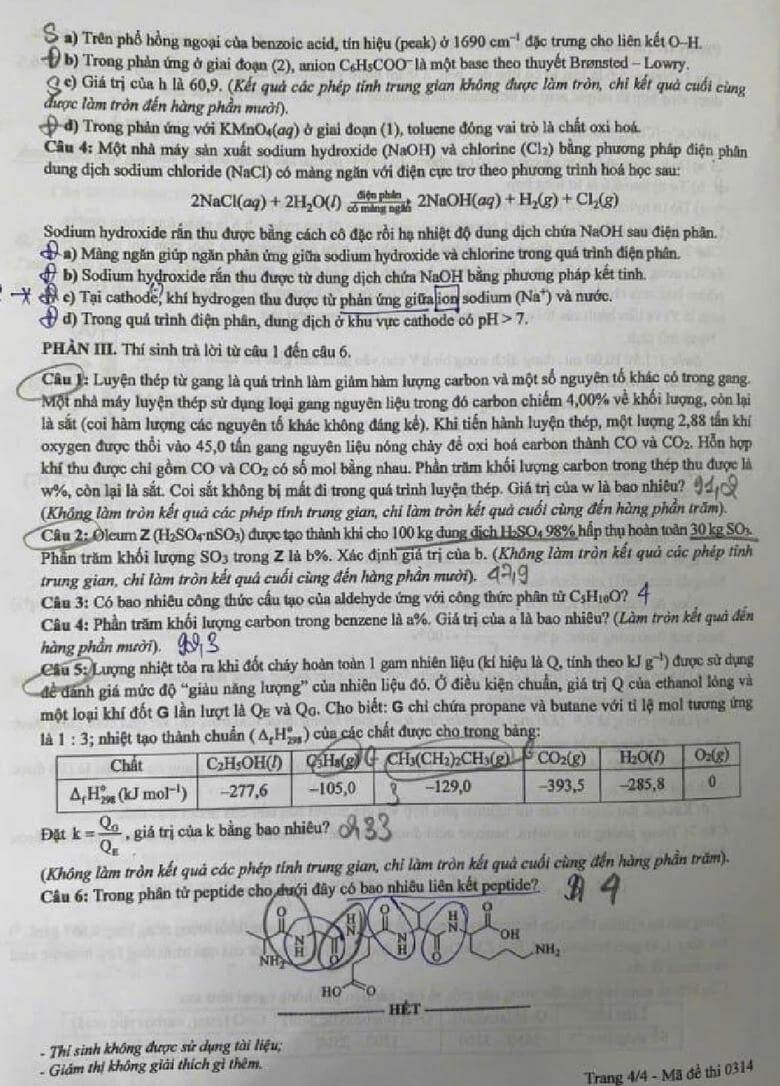 S a) Trên phổ hồng ngoại của benzoic acid, tín hiệu (peak) ở 1690 cm⁻¹ đặc trưng cho liên kết O–H.
Đ b) Trong phản ứng ở giai đoạn (2), anion C₆H₅COO⁻ là một base theo thuyết Brønsted – Lowry.
S c) Giá trị của h là 60,9. (Kết quả các phép tính trung gian không được làm tròn, chỉ kết quả cuối cùng
được làm tròn đến hàng phần mười).
Đ d) Trong phản ứng với KMnO₄(aq) ở giai đoạn (1), toluene đóng vai trò là chất oxi hoá.
Câu 4: Một nhà máy sản xuất sodium hydroxide (NaOH) và chlorine (Cl₂) bằng phương pháp điện phân
dung dịch sodium chloride (NaCl) có màng ngăn với điện cực trơ theo phương trình hoá học sau:
điện phân
2NaCl(aq) + 2H₂O(l) → 2NaOH(aq) + H₂(g) + Cl₂(g)
có màng ngăn
Sodium hydroxide rắn thu được bằng cách cô đặc rồi hạ nhiệt độ dung dịch chứa NaOH sau điện phân.
Đ a) Màng ngăn giúp ngăn phản ứng giữa sodium hydroxide và chlorine trong quá trình điện phân.
Đ b) Sodium hydroxide rắn thu được từ dung dịch chứa NaOH bằng phương pháp kết tinh.
c) Tại cathode, khí hydrogen thu được từ phản ứng giữa ion sodium (Na⁺) và nước.
Đ d) Trong quá trình điện phân, dung dịch ở khu vực cathode có pH > 7.
PHẦN III. Thí sinh trả lời từ câu 1 đến câu 6.
Câu 1: Luyện thép từ gang là quá trình làm giảm hàm lượng carbon và một số nguyên tố khác có trong gang.
Một nhà máy luyện thép sử dụng loại gang nguyên liệu trong đó carbon chiếm 4,00% về khối lượng, còn lại
là sắt (coi hàm lượng các nguyên tố khác không đáng kể). Khi tiến hành luyện thép, một lượng 2,88 tấn khí
oxygen được thổi vào 45,0 tấn gang nguyên liệu nóng chảy để oxi hoá carbon thành CO và CO₂. Hỗn hợp
khí thu được chỉ gồm CO và CO₂ có số mol bằng nhau. Phần trăm khối lượng carbon trong thép thu được là
w%, còn lại là sắt. Coi sắt không bị mất đi trong quá trình luyện thép. Giá trị của w là bao nhiêu?
(Không làm tròn kết quả các phép tính trung gian, chỉ làm tròn kết quả cuối cùng đến hàng phần trăm).
Câu 2: Oleum Z (H₂SO₄·nSO₃) được tạo thành khi cho 100 kg dung dịch H₂SO₄ 98% hấp thụ hoàn toàn 30 kg SO₃.
Phần trăm khối lượng SO₃ trong Z là b%. Xác định giá trị của b. (Không làm tròn kết quả các phép tính
trung gian, chỉ làm tròn kết quả cuối cùng đến hàng phần mười).
Câu 3: Có bao nhiêu công thức cấu tạo của aldehyde ứng với công thức phân tử C₅H₁₀O? 4
Câu 4: Phần trăm khối lượng carbon trong benzene là a%. Giá trị của a là bao nhiêu? (Làm tròn kết quả đến
hàng phần mười).
Câu 5: Lượng nhiệt tỏa ra khi đốt cháy hoàn toàn 1 gam nhiên liệu (kí hiệu là Q, tính theo kJ g⁻¹) được sử dụng
để đánh giá mức độ “giàu năng lượng” của nhiên liệu đó. Ở điều kiện chuẩn, giá trị Q của ethanol lỏng và
một loại khí đốt G lần lượt là Q_E và Q_G. Cho biết: G chỉ chứa propane và butane với tỉ lệ mol tương ứng
là 1 : 3; nhiệt tạo thành chuẩn (Δ_fH°₂₉₈) của các chất được cho trong bảng:
Chất C₂H₅OH(l) C₃H₈(g) CH₃(CH₂)₂CH₃(g) CO₂(g) H₂O(l) O₂(g)
Δ_fH°₂₉₈ (kJ mol⁻¹) –277,6 –105,0 –129,0 –393,5 –285,8 0
Đặt k = Q_G/Q_E, giá trị của k bằng bao nhiêu?
(Không làm tròn kết quả các phép tính trung gian, chỉ làm tròn kết quả cuối cùng đến hàng phần trăm).
Câu 6: Trong phân tử peptide cho dưới đây có bao nhiêu liên kết peptide? 4
O H N O H N O
NH₂ N H O N H O OH NH₂
HO O
HẾT
- Thí sinh không được sử dụng tài liệu;
- Giám thị không giải thích gì thêm.
Trang 4/4 - Mã đề thi 0314